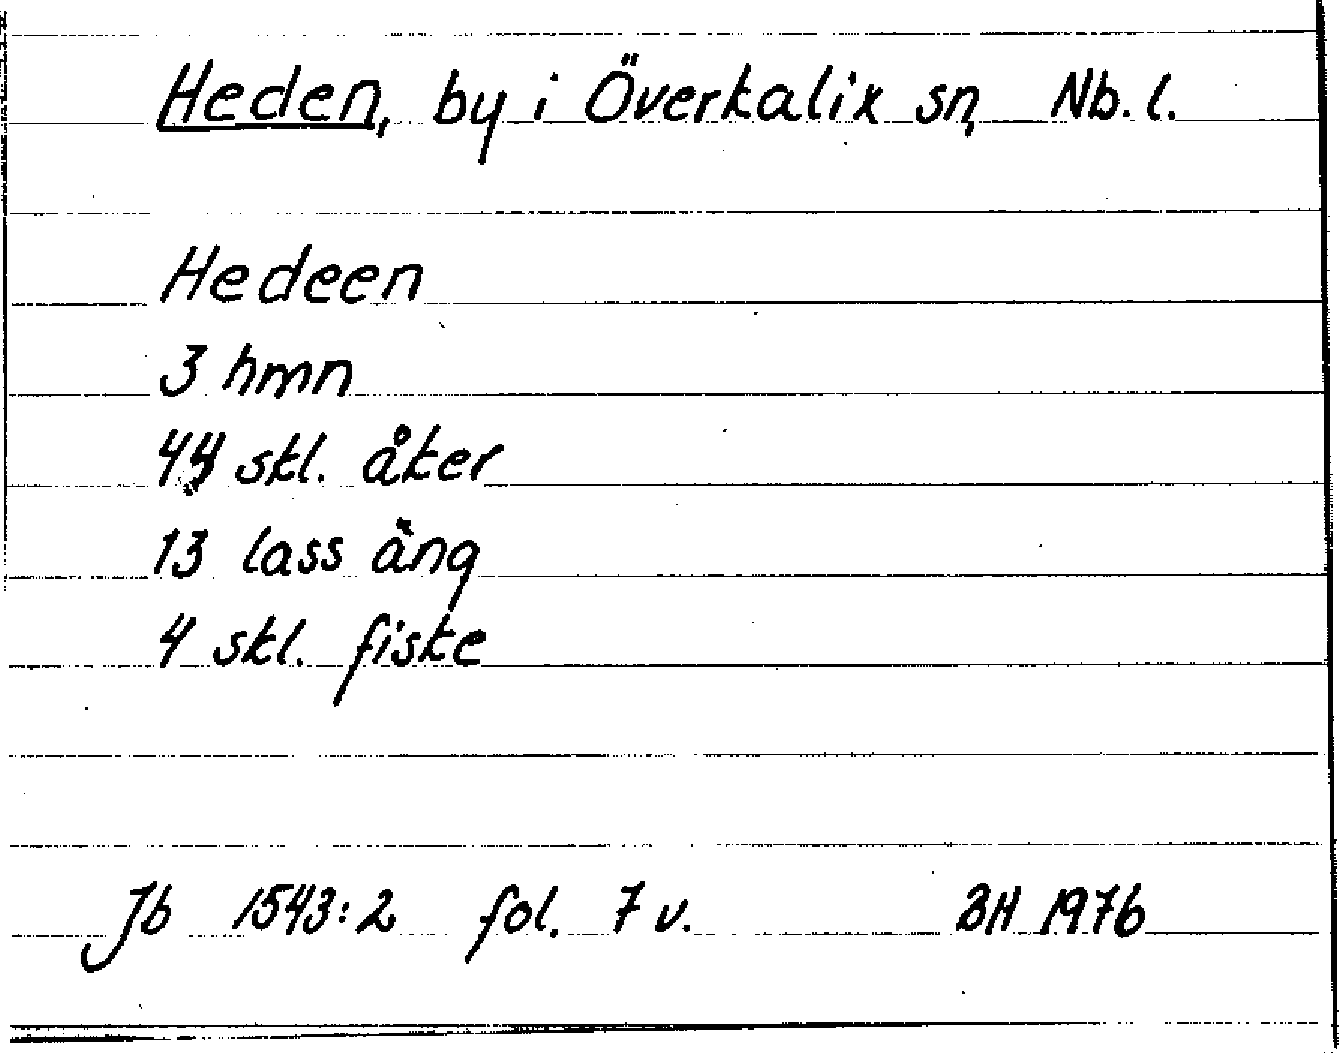 Heden, by i Överkalix sn, Nb. l.
Hedeen
3 hmn
44 skl. åker
13 lass äng
4 skl. fiske
Jb 1543:2 fol. 7 v. BH 1976